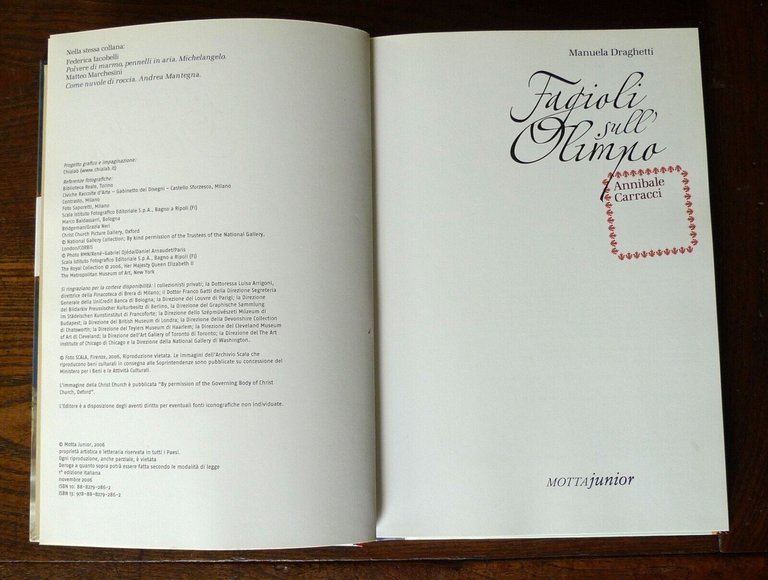 Nella stessa collana:
Federica Iacobelli
Polvere di marmo, pennelli in aria. Michelangelo.
Matteo Marchesini
Come nuvole di roccia. Andrea Mantegna.
Progetto grafico e impaginazione:
Chialab (www.chialab.it)
Referenze fotografiche:
Biblioteca Reale, Torino
Civiche Raccolte d'Arte – Gabinetto dei Disegni – Castello Sforzesco, Milano
Contrasto, Milano
Foto Saporetti, Milano
Scala Istituto Fotografico Editoriale S.p.A., Bagno a Ripoli (FI)
Marco Baldassarri, Bologna
Bridgeman/Grazia Neri
Christ Church Picture Gallery, Oxford
© National Gallery Collection; By kind permission of the Trustees of the National Gallery,
London/CORBIS
© Photo RMN/René-Gabriel Ojéda/Daniel Arnaudet/Paris
Scala Istituto Fotografico Editoriale S.p.A., Bagno a Ripoli (FI)
The Royal Collection © 2006, Her Majesty Queen Elizabeth II
The Metropolitan Museum of Art, New York
Si ringraziano per la cortese disponibilità: i collezionisti privati; la Dottoressa Luisa Arrigoni,
direttrice della Pinacoteca di Brera di Milano; il Dottor Franco Gatti della Direzione Segreteria
Generale della UniCredit Banca di Bologna; la Direzione del Louvre di Parigi; la Direzione
del Bildarkiv Preussischer Kulturbesitz di Berlino, la Direzione del Graphische Sammlung
im Städelschen Kunstinstitut di Francoforte; la Direzione dello Szépművészeti Múzeum di
Budapest; la Direzione del British Museum di Londra; la Direzione della Devonshire Collection
di Chatsworth; la Direzione del Teylers Museum di Haarlem; la Direzione del Cleveland Museum
of Art di Cleveland; la Direzione dell'Art Gallery of Toronto di Toronto; la Direzione del The Art
Institute of Chicago di Chicago e la Direzione della National Gallery di Washington.
© Foto SCALA, Firenze, 2006, Riproduzione vietata. Le immagini dell'Archivio Scala che
riproducono beni culturali in consegna alle Soprintendenze sono pubblicate su concessione del
Ministero per i Beni e le Attività Culturali.
L'immagine della Christ Church è pubblicata "By permission of the Governing Body of Christ
Church, Oxford".
L'Editore è a disposizione degli aventi diritto per eventuali fonti iconografiche non individuate.
© Motta Junior, 2006
proprietà artistica e letteraria riservata in tutti i Paesi.
Ogni riproduzione, anche parziale, è vietata
Deroga a quanto sopra potrà essere fatta secondo le modalità di legge
1ª edizione italiana
novembre 2006
ISBN 10: 88-8279-286-2
ISBN 13: 978-88-8279-286-2
Manuela Draghetti
Fagioli
sull'
Olimpo
Annibale
Carracci
MOTTAjunior